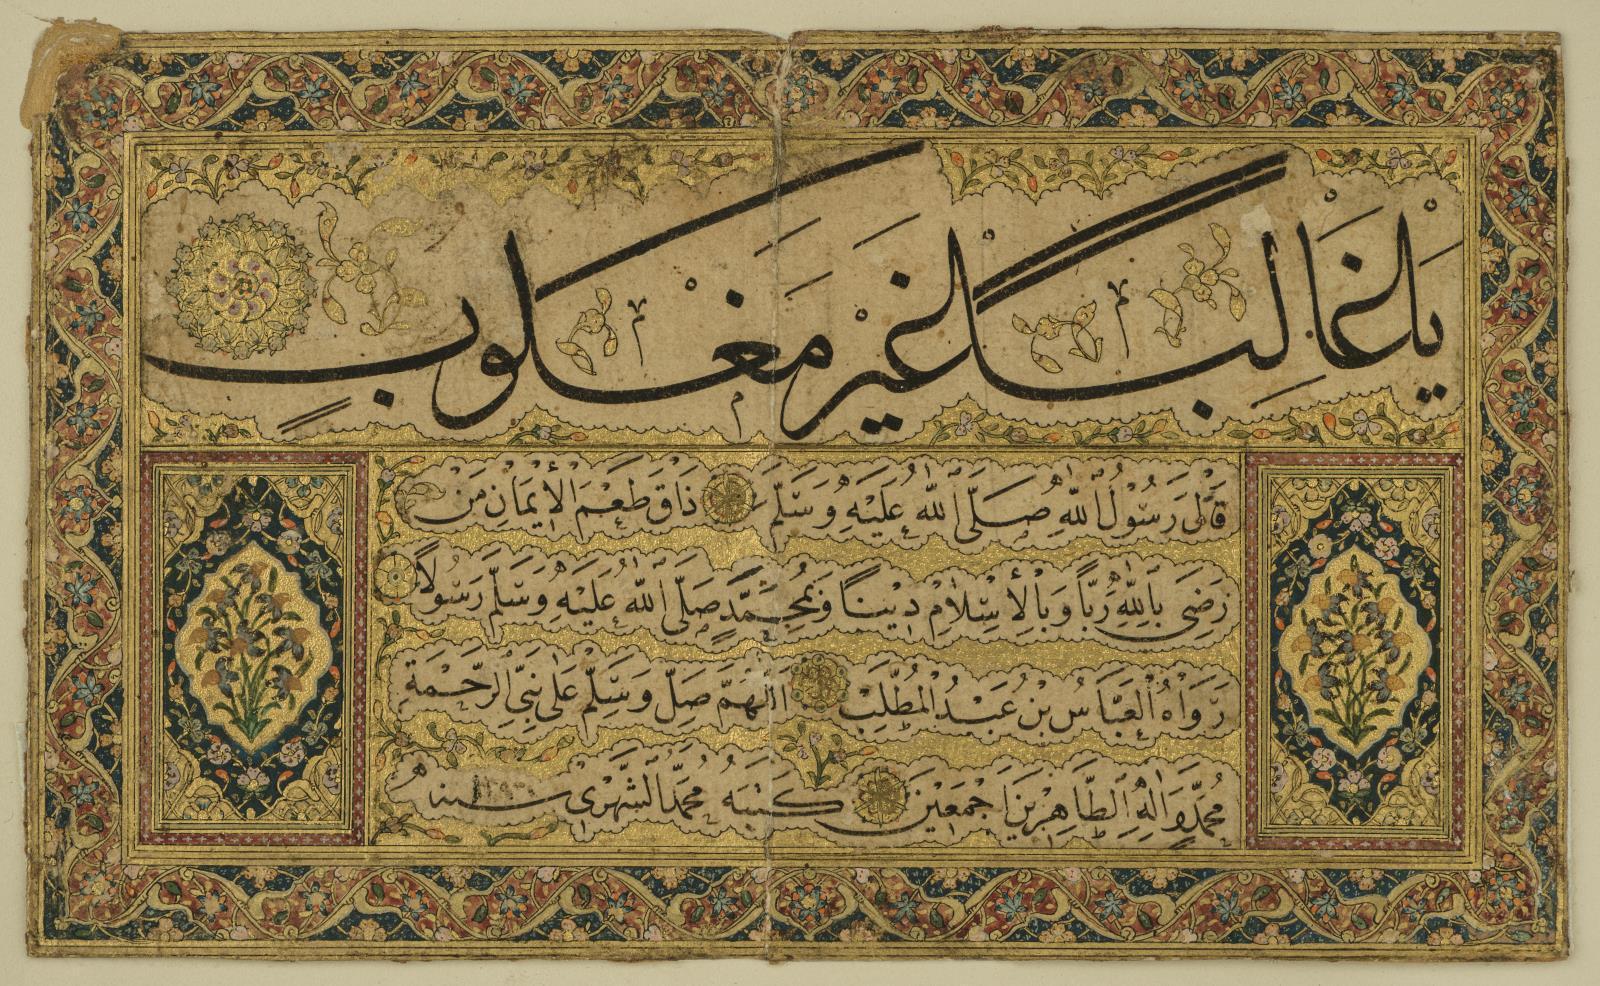 يَا غَالِبًا غَيْرَ مَغْلُوبٍ
قَالَ رَسُوْلُ اللهِ صَلَّى اللهُ عَلَيْهِ وَسَلَّمَ ذَاقَ طَعْمَ الْإِيْمَانِ مَنْ
رَضِيَ بِاللهِ رَبًّا وَبِالْإِسْلَامِ دِيْنًا وَبِمُحَمَّدٍ صَلَّى اللهُ عَلَيْهِ وَسَلَّمَ رَسُوْلًا
رَوَاهُ الْعَبَّاسُ بْنُ عَبْدُ الْمُطَّلِبْ اللّهُمَّ صَلِّ وَسَلِّمْ عَلَى نَبِيِّ الرَّحْمَةِ
مُحَمَّدٍ وَاٰلِهِ الطَّاهِرِيْنَ اَجْمَعِيْنَ كتبه محمد الشهرى سنه